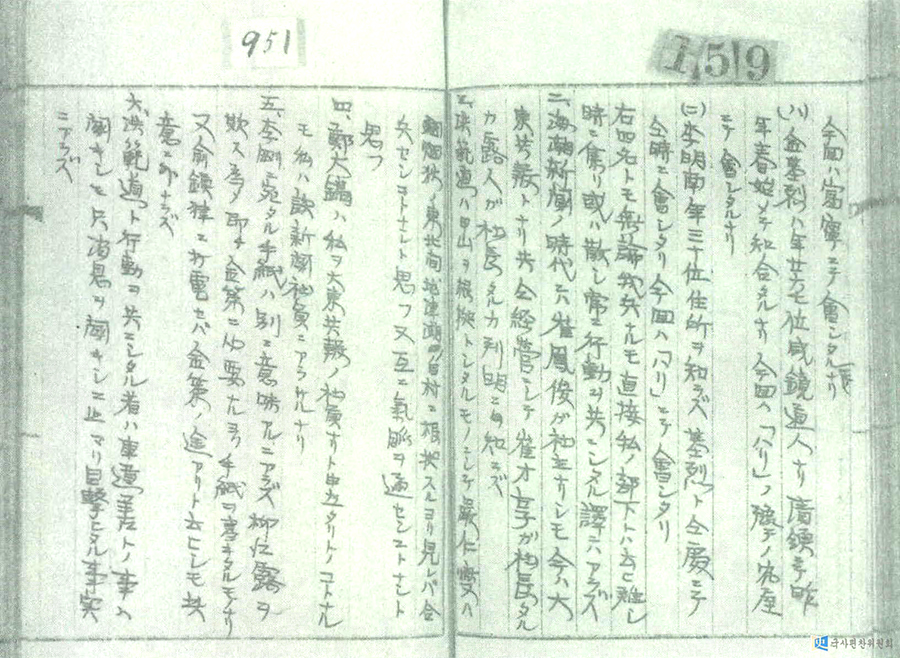 951
159
今回ハ富寧ニテ會シタルナリ
(八)金基烈ハ年廿五六位咸鏡道人ナリ廣頭子昨
年春始メテ知合タルナリ今回ハ「ハリ」ノ豫テノ宛屋
ニテ會シタルナリ
(二)李明南ハ年三十位住所ヲ知ラズ基烈ト仝處ニテ
仝時ニ會シタリ今回ハ「ハリ」ニテ會シタリ
右四名トモ無論我兵ナルモ直接私ノ部下トハ云ヒ難シ
時ニ集リ或ハ散シ常ニ行動ヲ共ニシタル譯ニハアラズ
二、海潮新聞ノ時代ニハ崔鳳俊ガ社主ナリシモ今ハ大
東共報トナリ共仝経営ニシテ崔才亨ガ社長タル
カ露人ガ社長タルカ判明ニハ知ラズ
三、洪範道ハ白山ヲ根拠トシタルモノニシテ嚴仁燮ハ
烟秋ノ東北 地津湖 村ニ根拠スルヨリ見レバ合
兵センコトナシト思フ又互ニ氣脈ヲ通セシコトナシト
思フ
四、鄭大鎬ハ私ヲ大東共報ノ社員ナリト申立タリトノコトナル
モ私ハ該新聞社員ニアラザルナリ
五、李剛ニ宛タル手紙ハ別ニ意味アルニアラズ柳江露ヲ
欺ス為メ即チ金策ニ必要ナルヨリ手紙ヲ書キタルモノナリ
又俞鎮律ニ打電セバ金策ノ途アリト云ヒシモ其
意ニ外ナラズ
六、洪範道ト行動ヲ共ニシタル者ハ車道善ナトノ事ハ
聞キシモ只消息ヲ聞キシニ止マリ目撃シタル事実
ニアラズ
국사편찬위원회